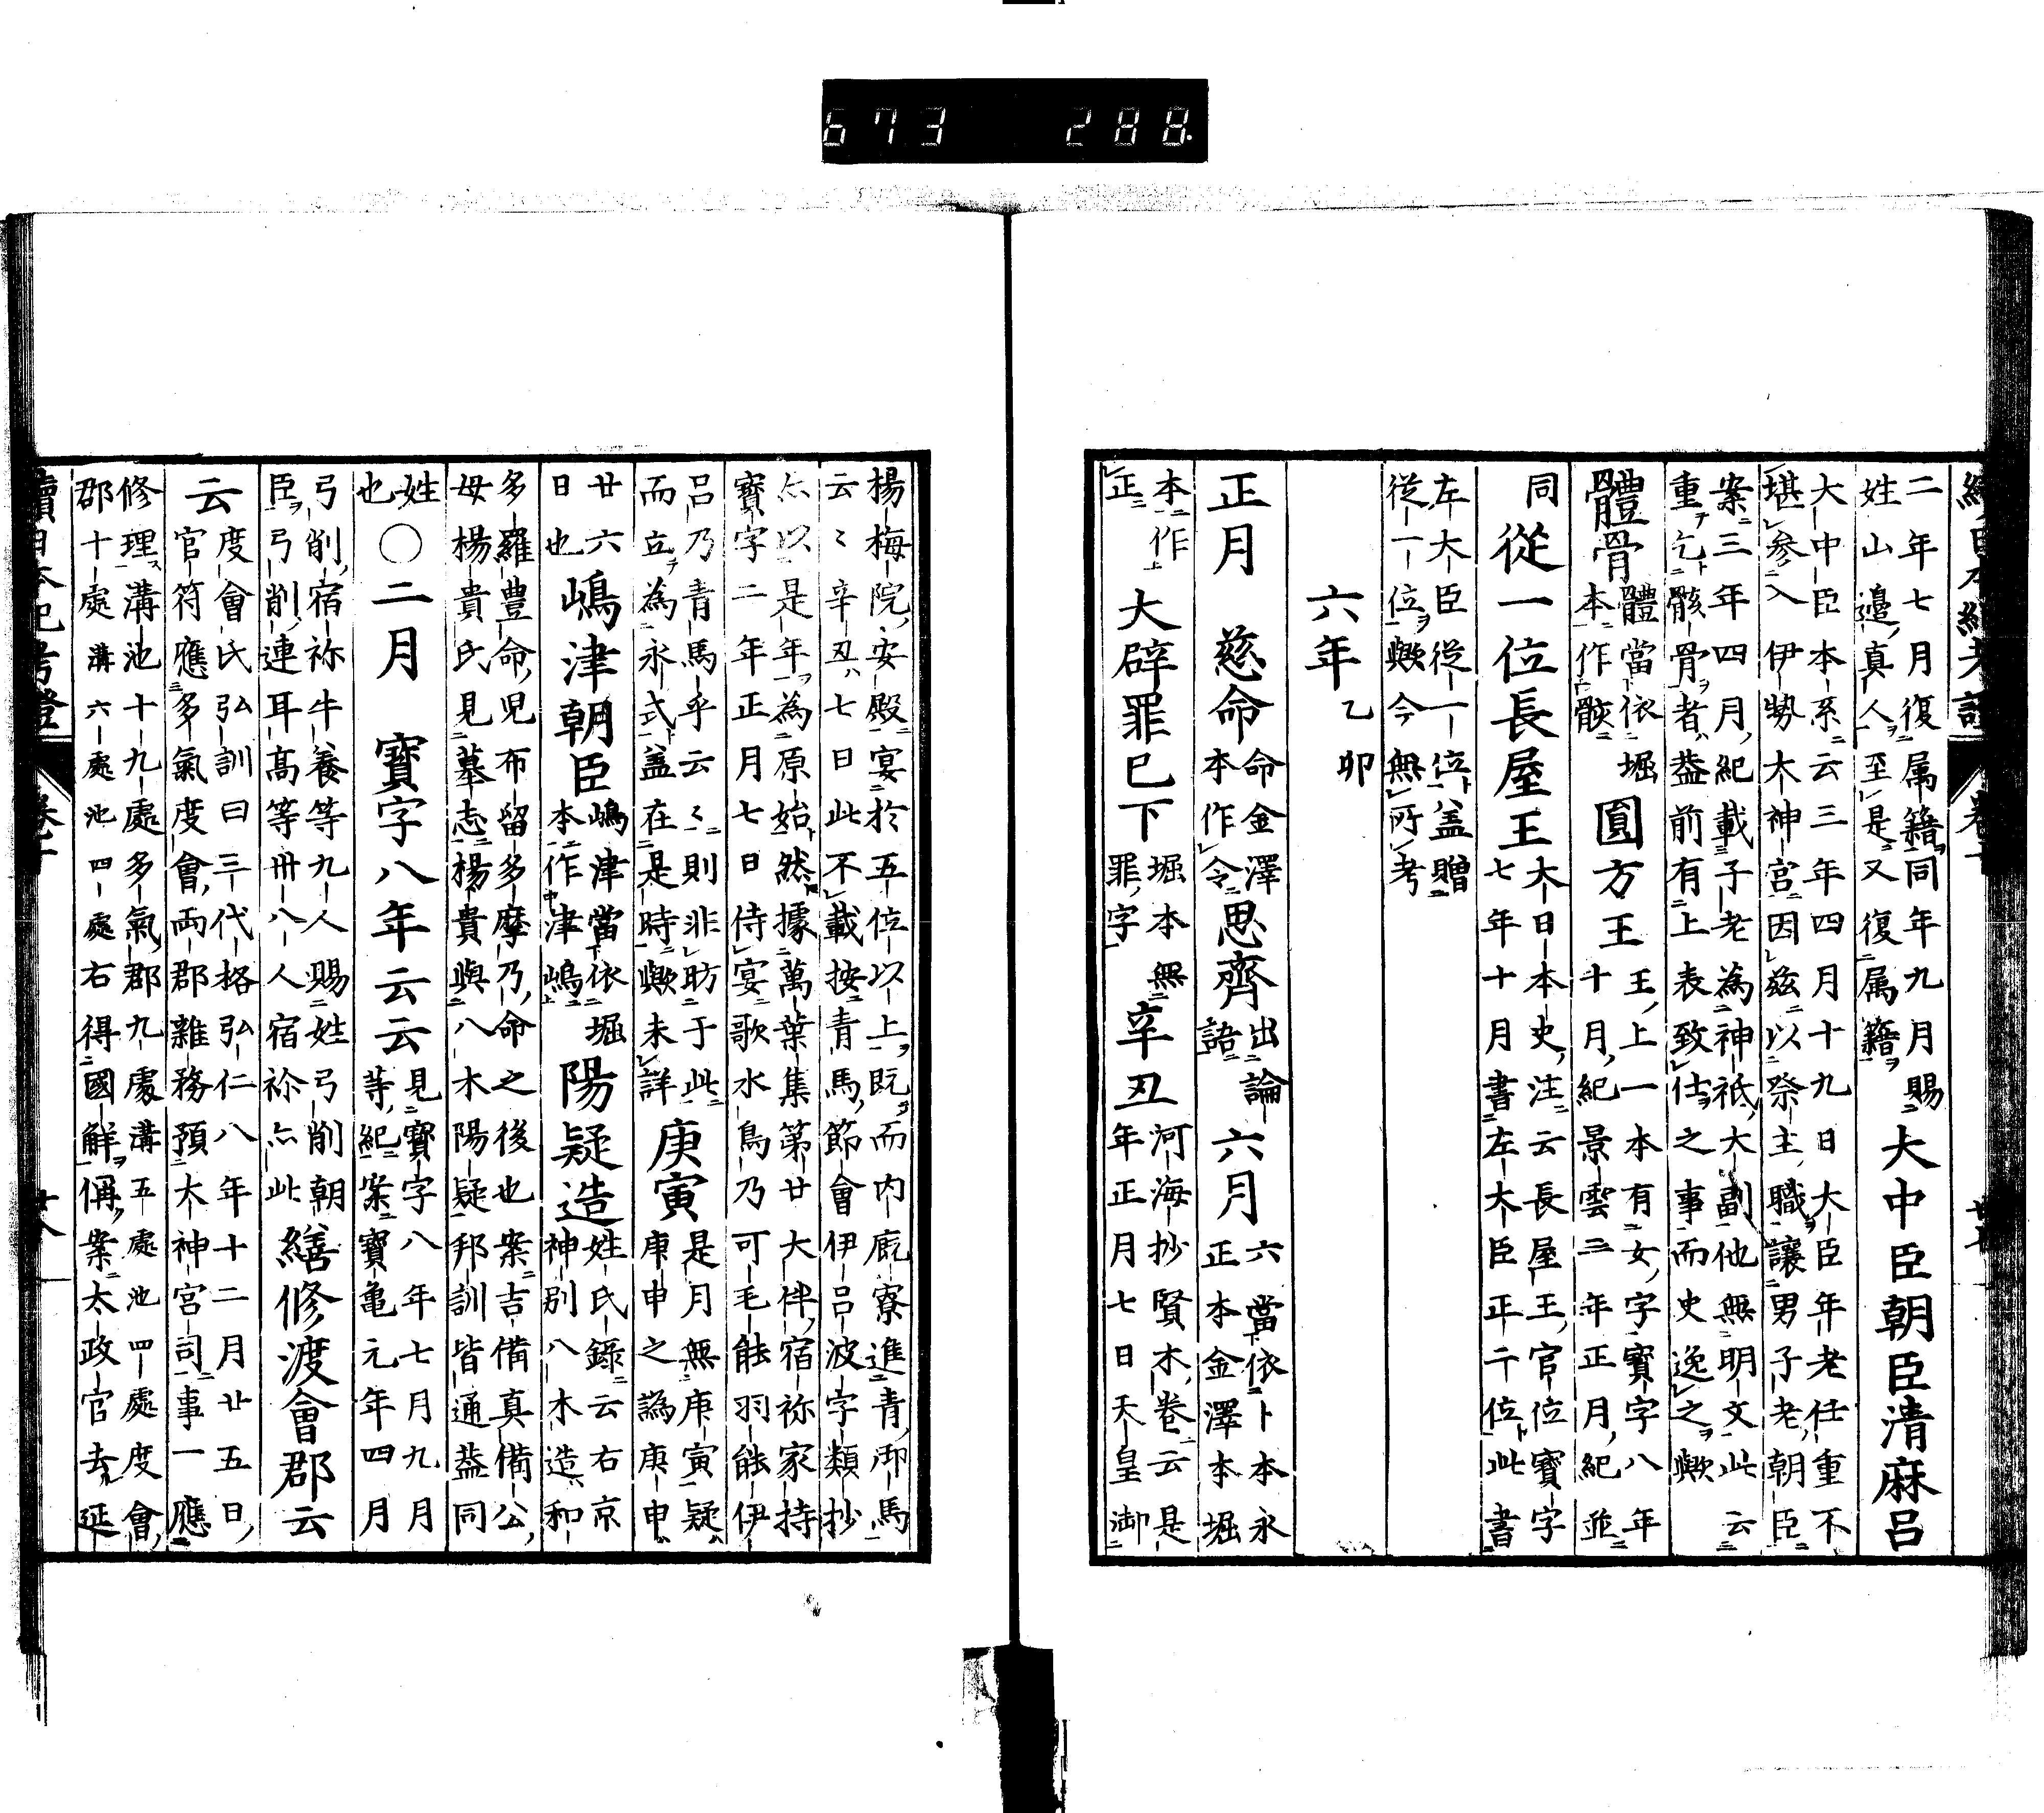 673 288
二年七月復属籍同年九月賜
姓山邉真人至是又復属籍
大中臣朝臣清麻呂
大中臣本系云三年四月十九日大臣年老任重不
堪参入伊勢太神宮因兹以祭主職讓男子老朝臣
案三年四月紀載子老為神祇大副他無明文此云
重乞骸骨者葢前有上表致仕之事而史逸之歟
體骨
體當依堀
本作骸
圓方王
王上一本有女字寳字八年
十月紀景雲二年正月紀並
同
從一位長屋王
大日本史注云長屋王官位寳字
七年十月書左大臣正二位此書
左大臣從一位盖贈
從一位歟今無所考
六年乙卯
正月
慈命
命金澤
本作令
思齊
出論
語
六月
六當依卜本永
正本金澤本堀
本作
正
大辟罪已下
堀本無
罪字
辛丑
河海抄賢木卷云是
年正月七日天皇御
楊梅院安殿宴於五位以上既而内厩寮進青御馬
云々辛丑七日此不載按青馬節會伊呂波字類抄
亦以是年為原始然據萬葉集第廿大伴宿祢家持
寳字二年正月七日侍宴歌水鳥乃可毛能羽能伊
呂乃青馬乎云々則非昉于此
而立為永式盖在是時歟未詳
庚寅
是月無庚寅疑
庚申之譌庚申
廿六
日也
嶋津朝臣
嶋津當依堀
本作津嶋
陽疑造
姓氏錄云右京
神別八木造和
多羅豊命児布留多摩乃命之後也案吉備真備公
母楊貴氏見墓志楊貴與八木陽疑邦訓皆通葢同
姓
也
○二月
寳字八年云云
見寳字八年七月九月
等紀案寳亀元年四月
弓削宿祢牛養等九人賜姓弓削朝
臣弓削連耳高等卅八人宿祢亦此
繕修渡會郡云
云
度會氏弘訓曰三代格弘仁八年十二月廿五日
官符應多氣度會両郡雜務預太神宮司事一應
修理溝池十九處多氣郡九處溝五處池四處度會
郡十處溝六處池四處右得國解偁案太政官去延